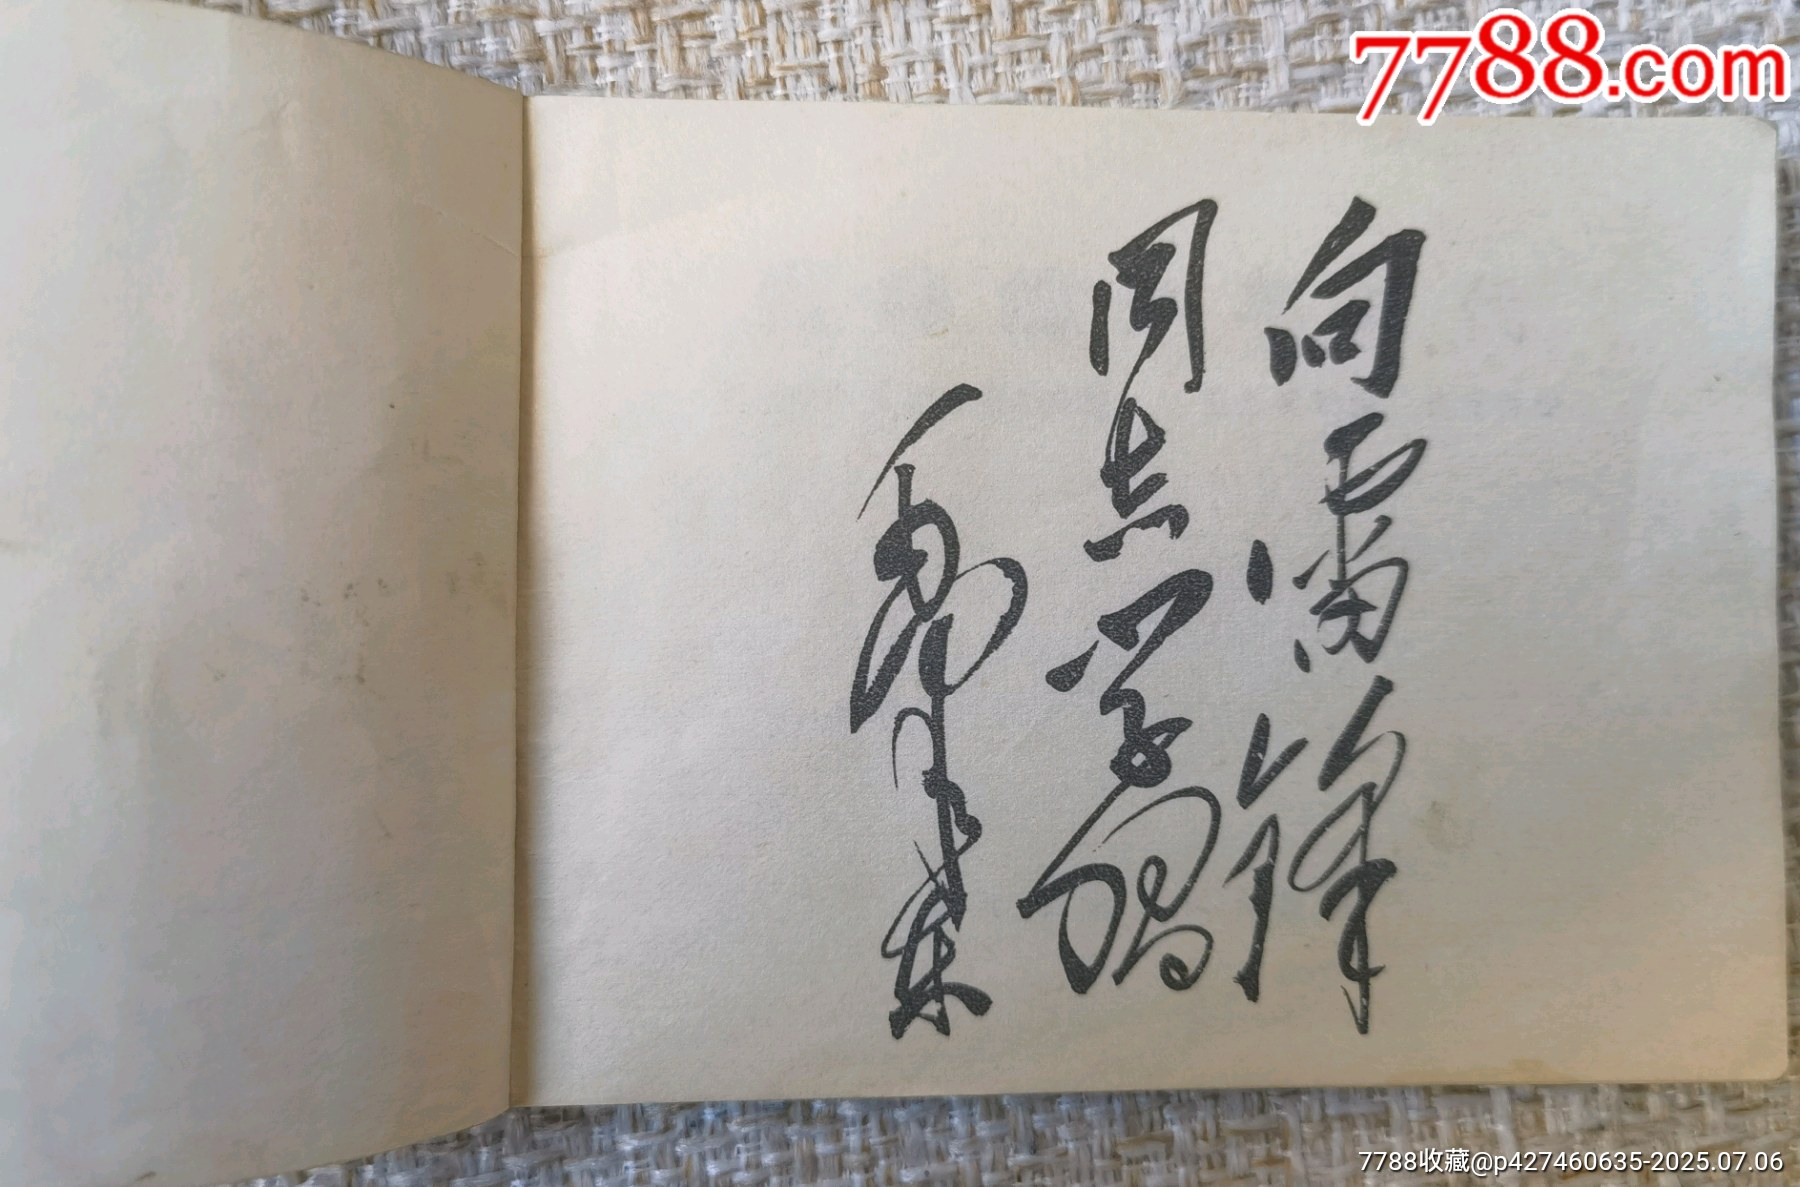 7788.com
向雷锋
同志学习
毛泽东
7788收藏@p427460635-2025.07.06